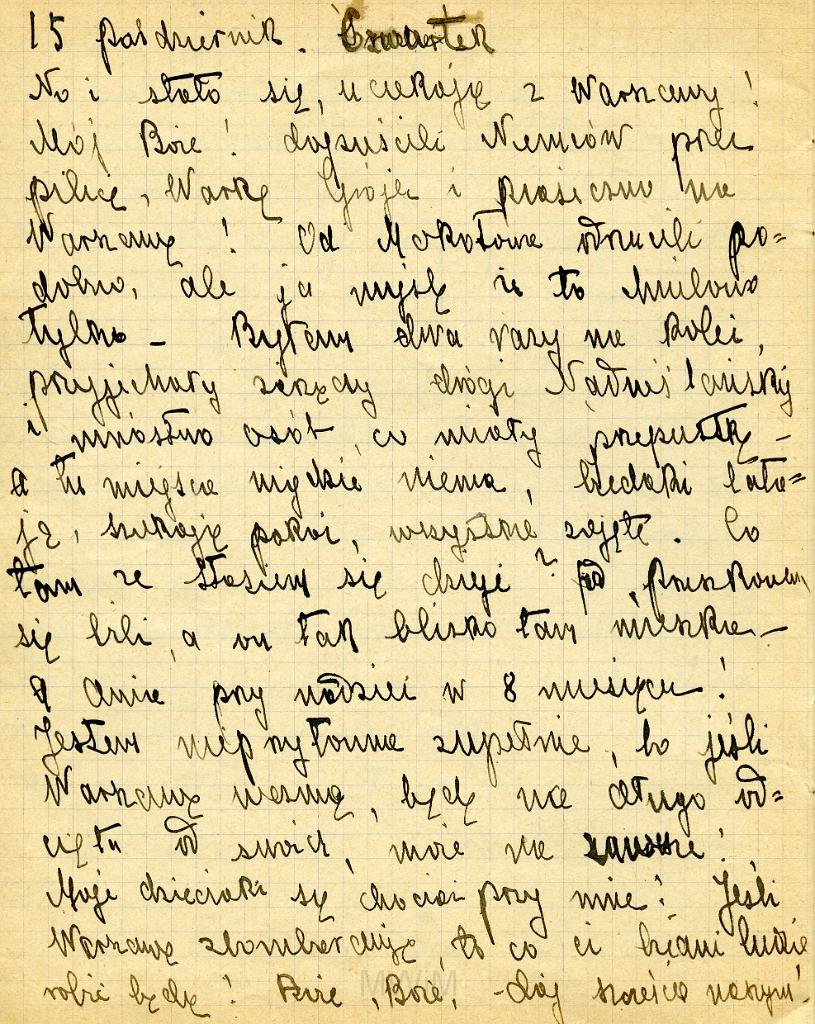 15 październik. Czwartek
No i stało się, uciekają z Warszawy!
Mój Boże! dopuścili Niemców przez
pilicę, Warkę Grójec i piaseczno na
Warszawę! Od Mokotowa odrzucili po=
dobno, ale ja myślę że to chwilowo
tylko – Byłam dwa razy na kolei,
przyjechały zarządy drogi Nadwiślańskiej
i mnóstwo osób, co miały przepustkę –
a tu miejsca nigdzie niema, biedaki lata=
ją, szukają pokoi, wszystkie zajęte. Co
tam ze Stasiem się dzieje? pod Pruszkowem
się bili, a on tak blizko tam mieszka –
a Ania przy nadziei w 8 miesiącu!
Jestem nieprzytomna zupełnie, bo jeśli
Warszawę wezmą, będę na długo od=
cięta od swoich, może na zawsze!
Moje dzieciaki są chociaż przy mnie! Jeśli
Warszawę zbombardują, to co ci biedni ludzie
robić będą! Boże, Boże, daj szczęście naszym!
MWiM